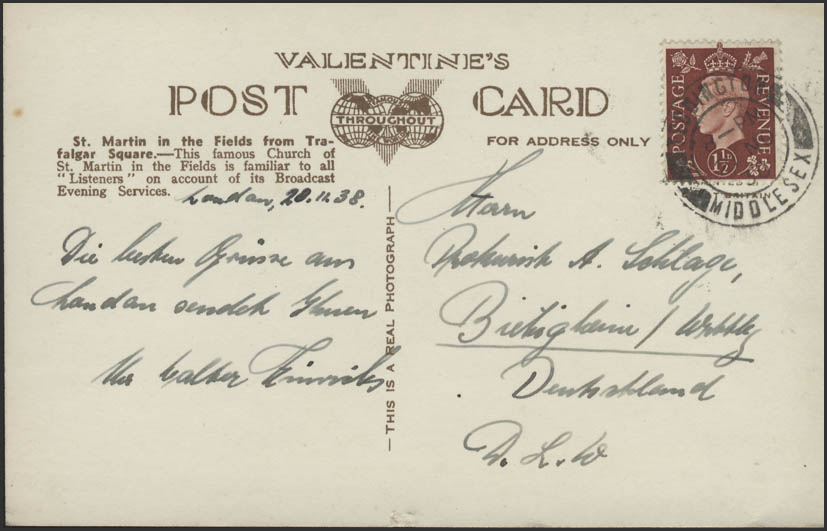 VALENTINE'S
POST CARD
FAMOUS
THROUGHOUT
THE WORLD
FOR ADDRESS ONLY
St. Martin in the Fields from Tra-
falgar Square.—This famous Church of
St. Martin in the Fields is familiar to all
"Listeners" on account of its Broadcast
Evening Services.
London, 20.11.38.
Die besten Grüsse aus
London sendet Ihnen
Ihr Walter Hinrichs
THIS IS A REAL PHOTOGRAPH
POSTAGE REVENUE
1½D
MIDDLESEX
Herrn
Prokurist A. Schlage,
Bietigheim / Wrttbg
Deutschland
D. L. W